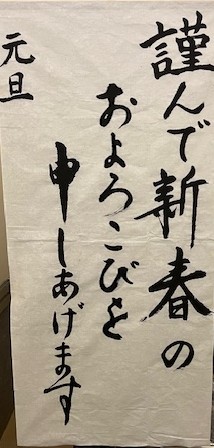 謹んで新春の
およろこびを
申しあげます
元旦